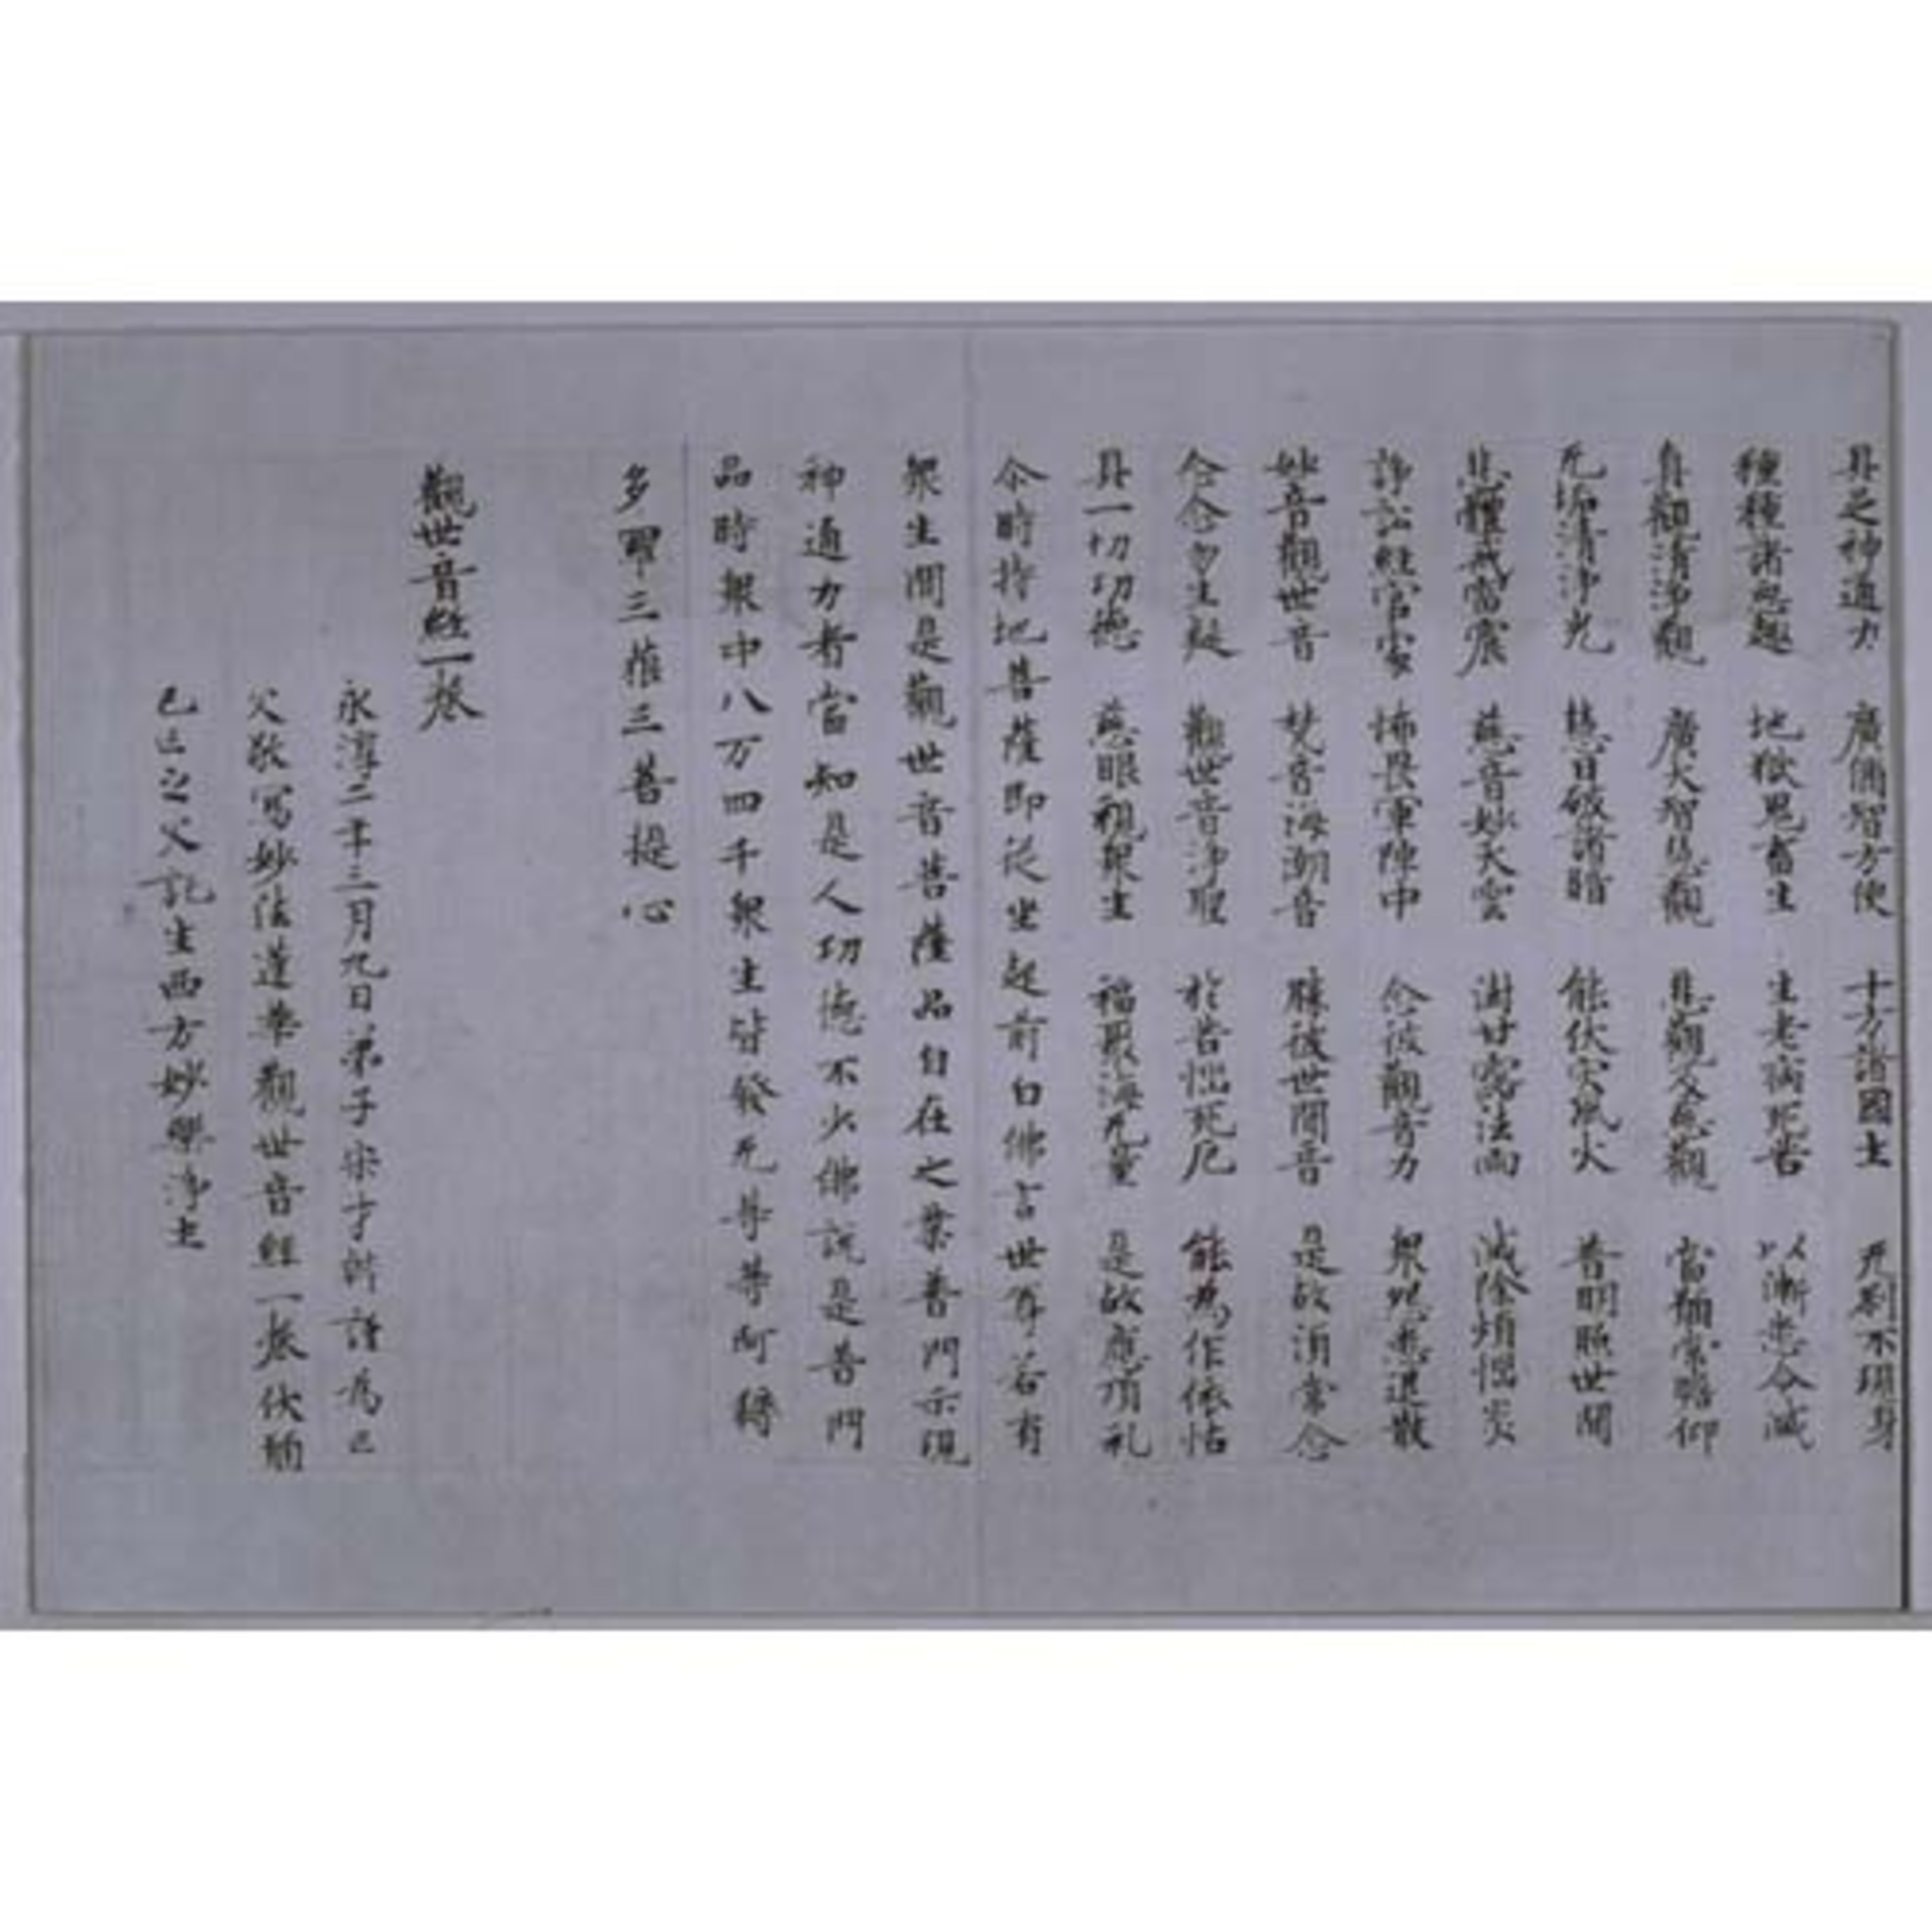 具足神通力 廣俻智方便 十方諸國土 无刹不現身
種種諸惡趣 地獄鬼畜生 生老病死苦 以漸悉令滅
真觀清淨觀 廣大智惠觀 悲觀及慈觀 常願常瞻仰
无垢清淨光 慧日破諸暗 能伏灾風火 普明照世間
悲體戒雷震 慈音妙大雲 澍甘露法雨 滅除煩惱炎
諍訟經官處 怖畏軍陣中 念彼觀音力 衆怨悉退散
妙音觀世音 梵音海潮音 勝彼世間音 是故須常念
念念勿生疑 觀世音淨聖 於苦惱死厄 能為作依怙
具一切功德 慈眼視衆生 福聚海无量 是故應頂礼
尒時持地菩薩即從坐起前白佛言世尊若有
衆生聞是觀世音菩薩品自在之業普門示現
神通力者當知是人功德不少佛說是普門
品時衆中八万四千衆生皆發无等等阿耨
多羅三藐三菩提心
觀世音經一卷
永淳二年三月九日弟子宋才 謹為亡
父敬寫妙法蓮華觀世音經一卷伏願
已亡之父託生西方妙樂淨土